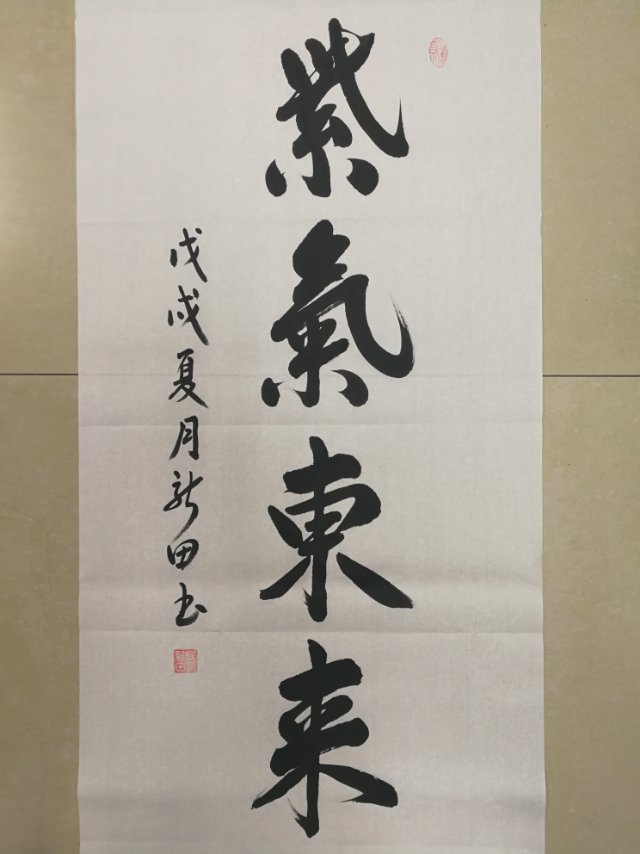 紫氣東来
戊戌夏月新田书